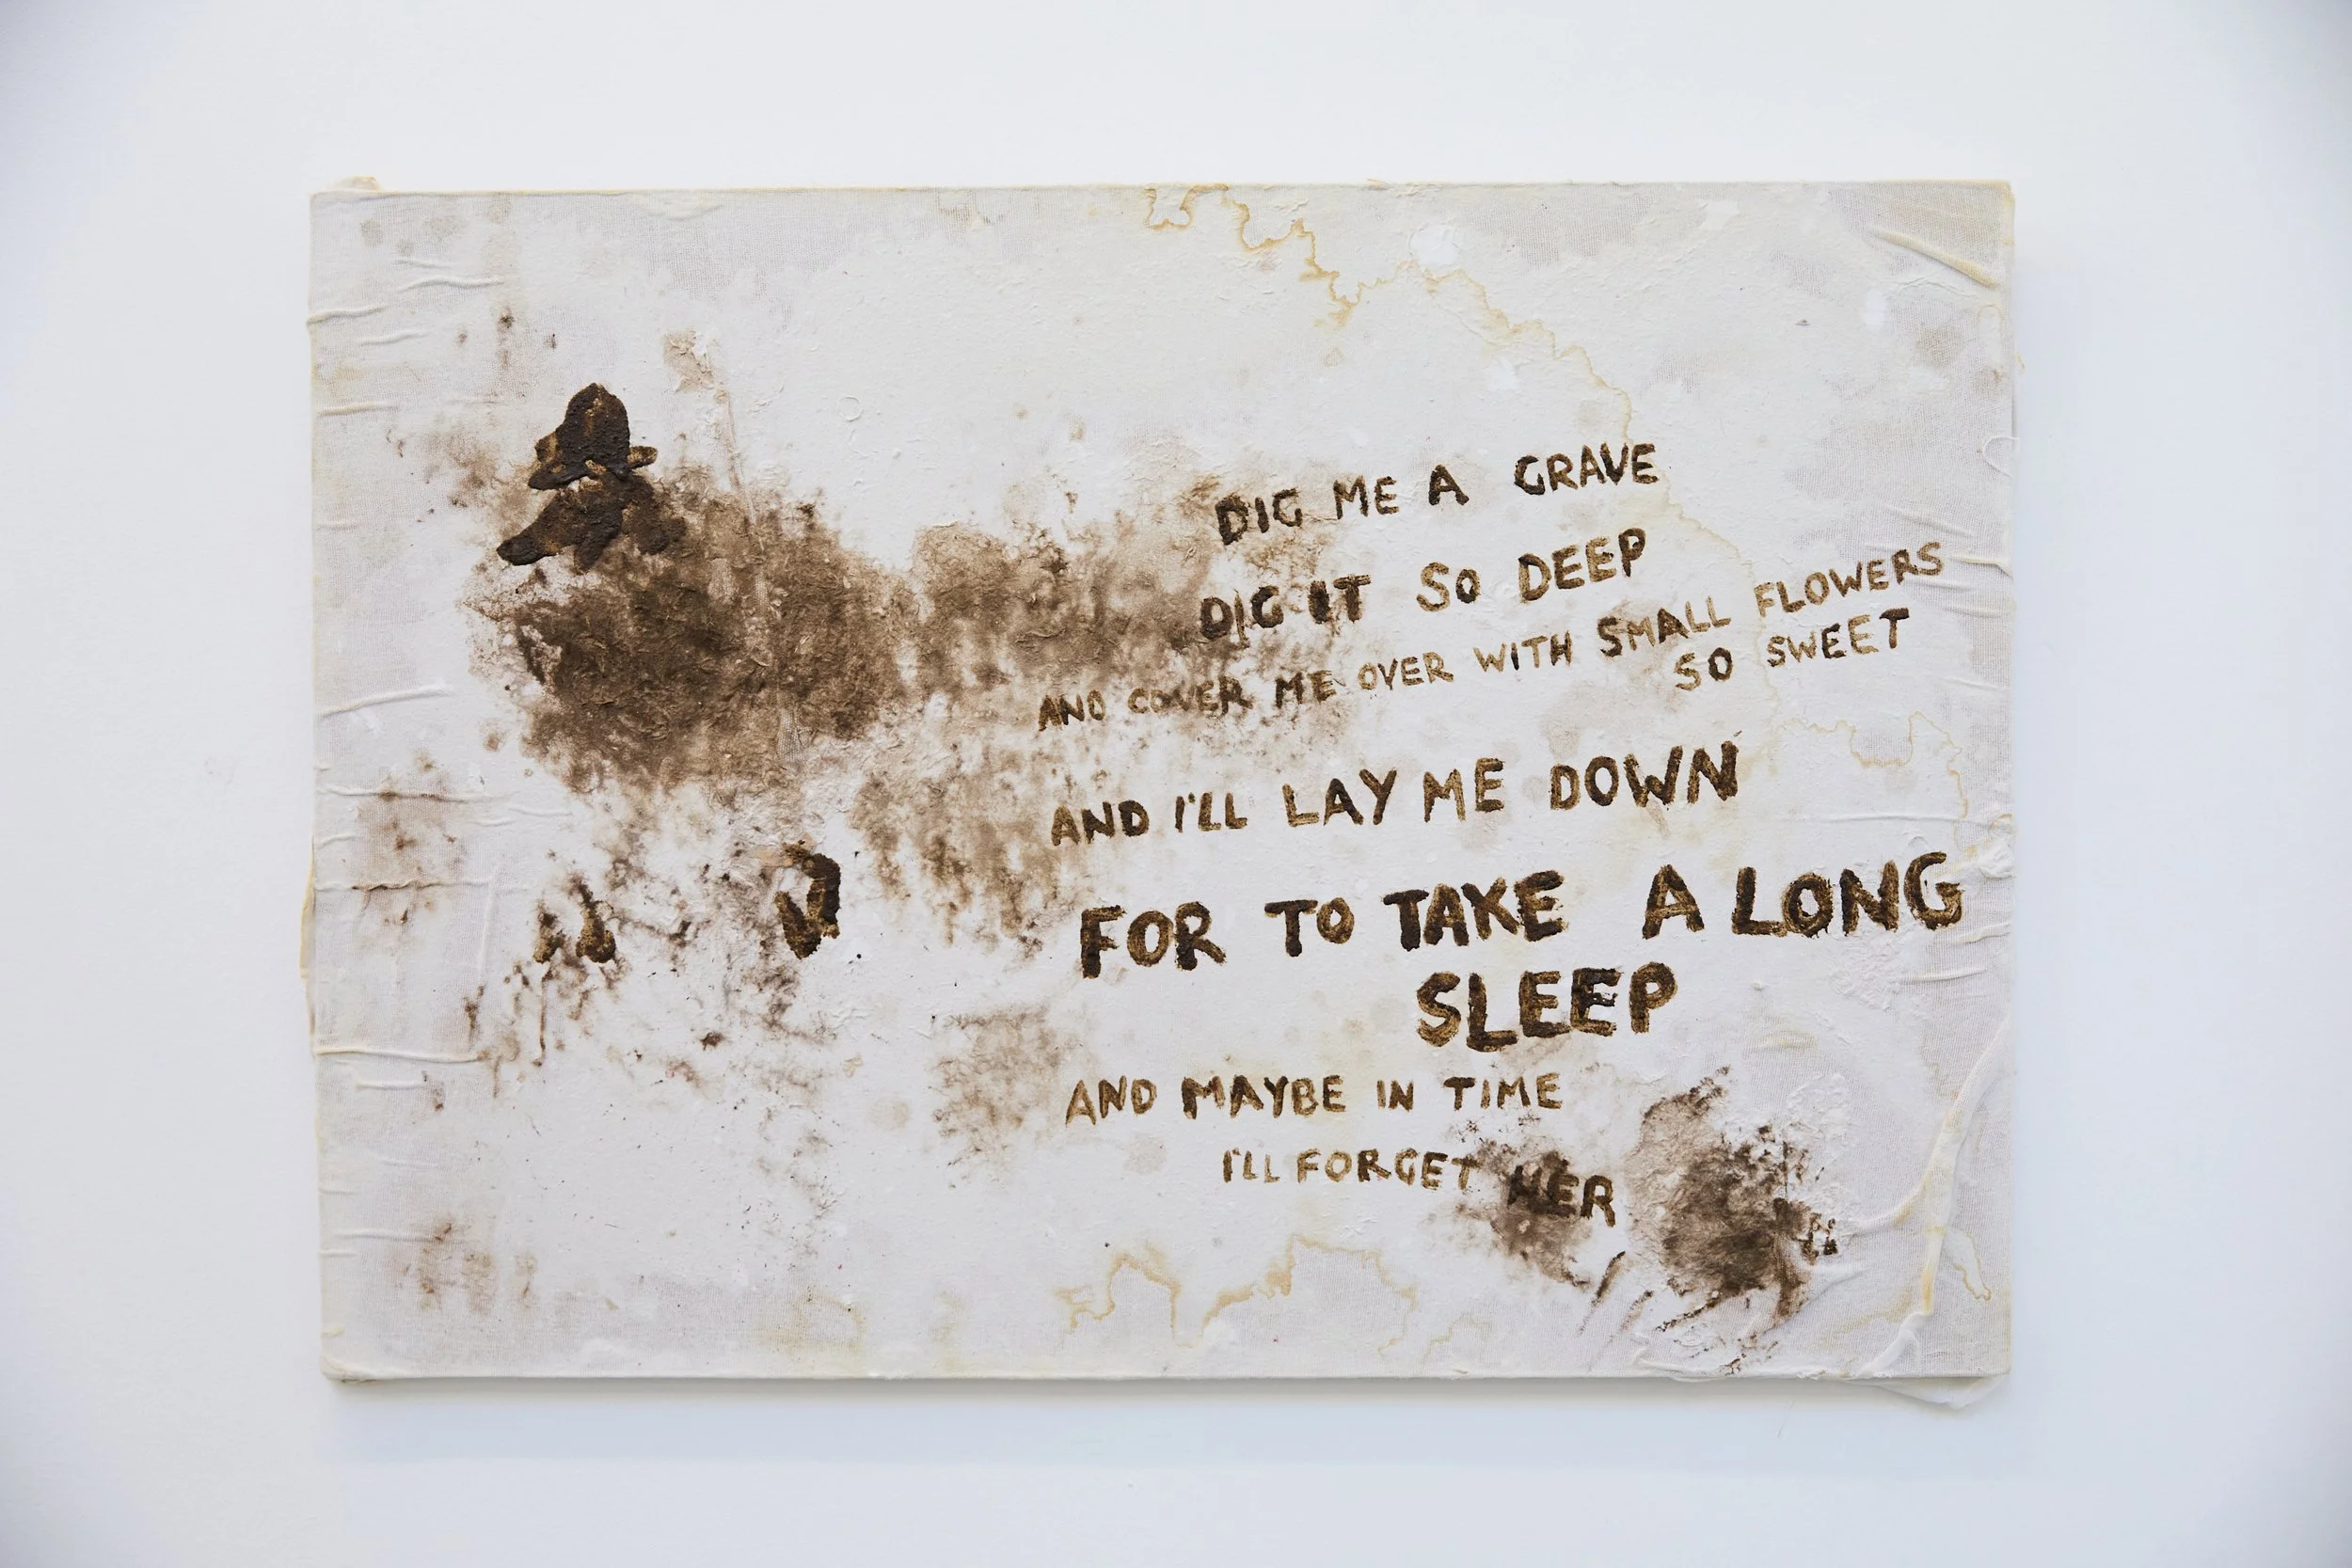 DIG ME A GRAVE
DIG IT SO DEEP
AND COVER ME OVER WITH SMALL FLOWERS
SO SWEET
AND I'LL LAY ME DOWN
FOR TO TAKE A LONG
SLEEP
AND MAYBE IN TIME
I'LL FORGET HER